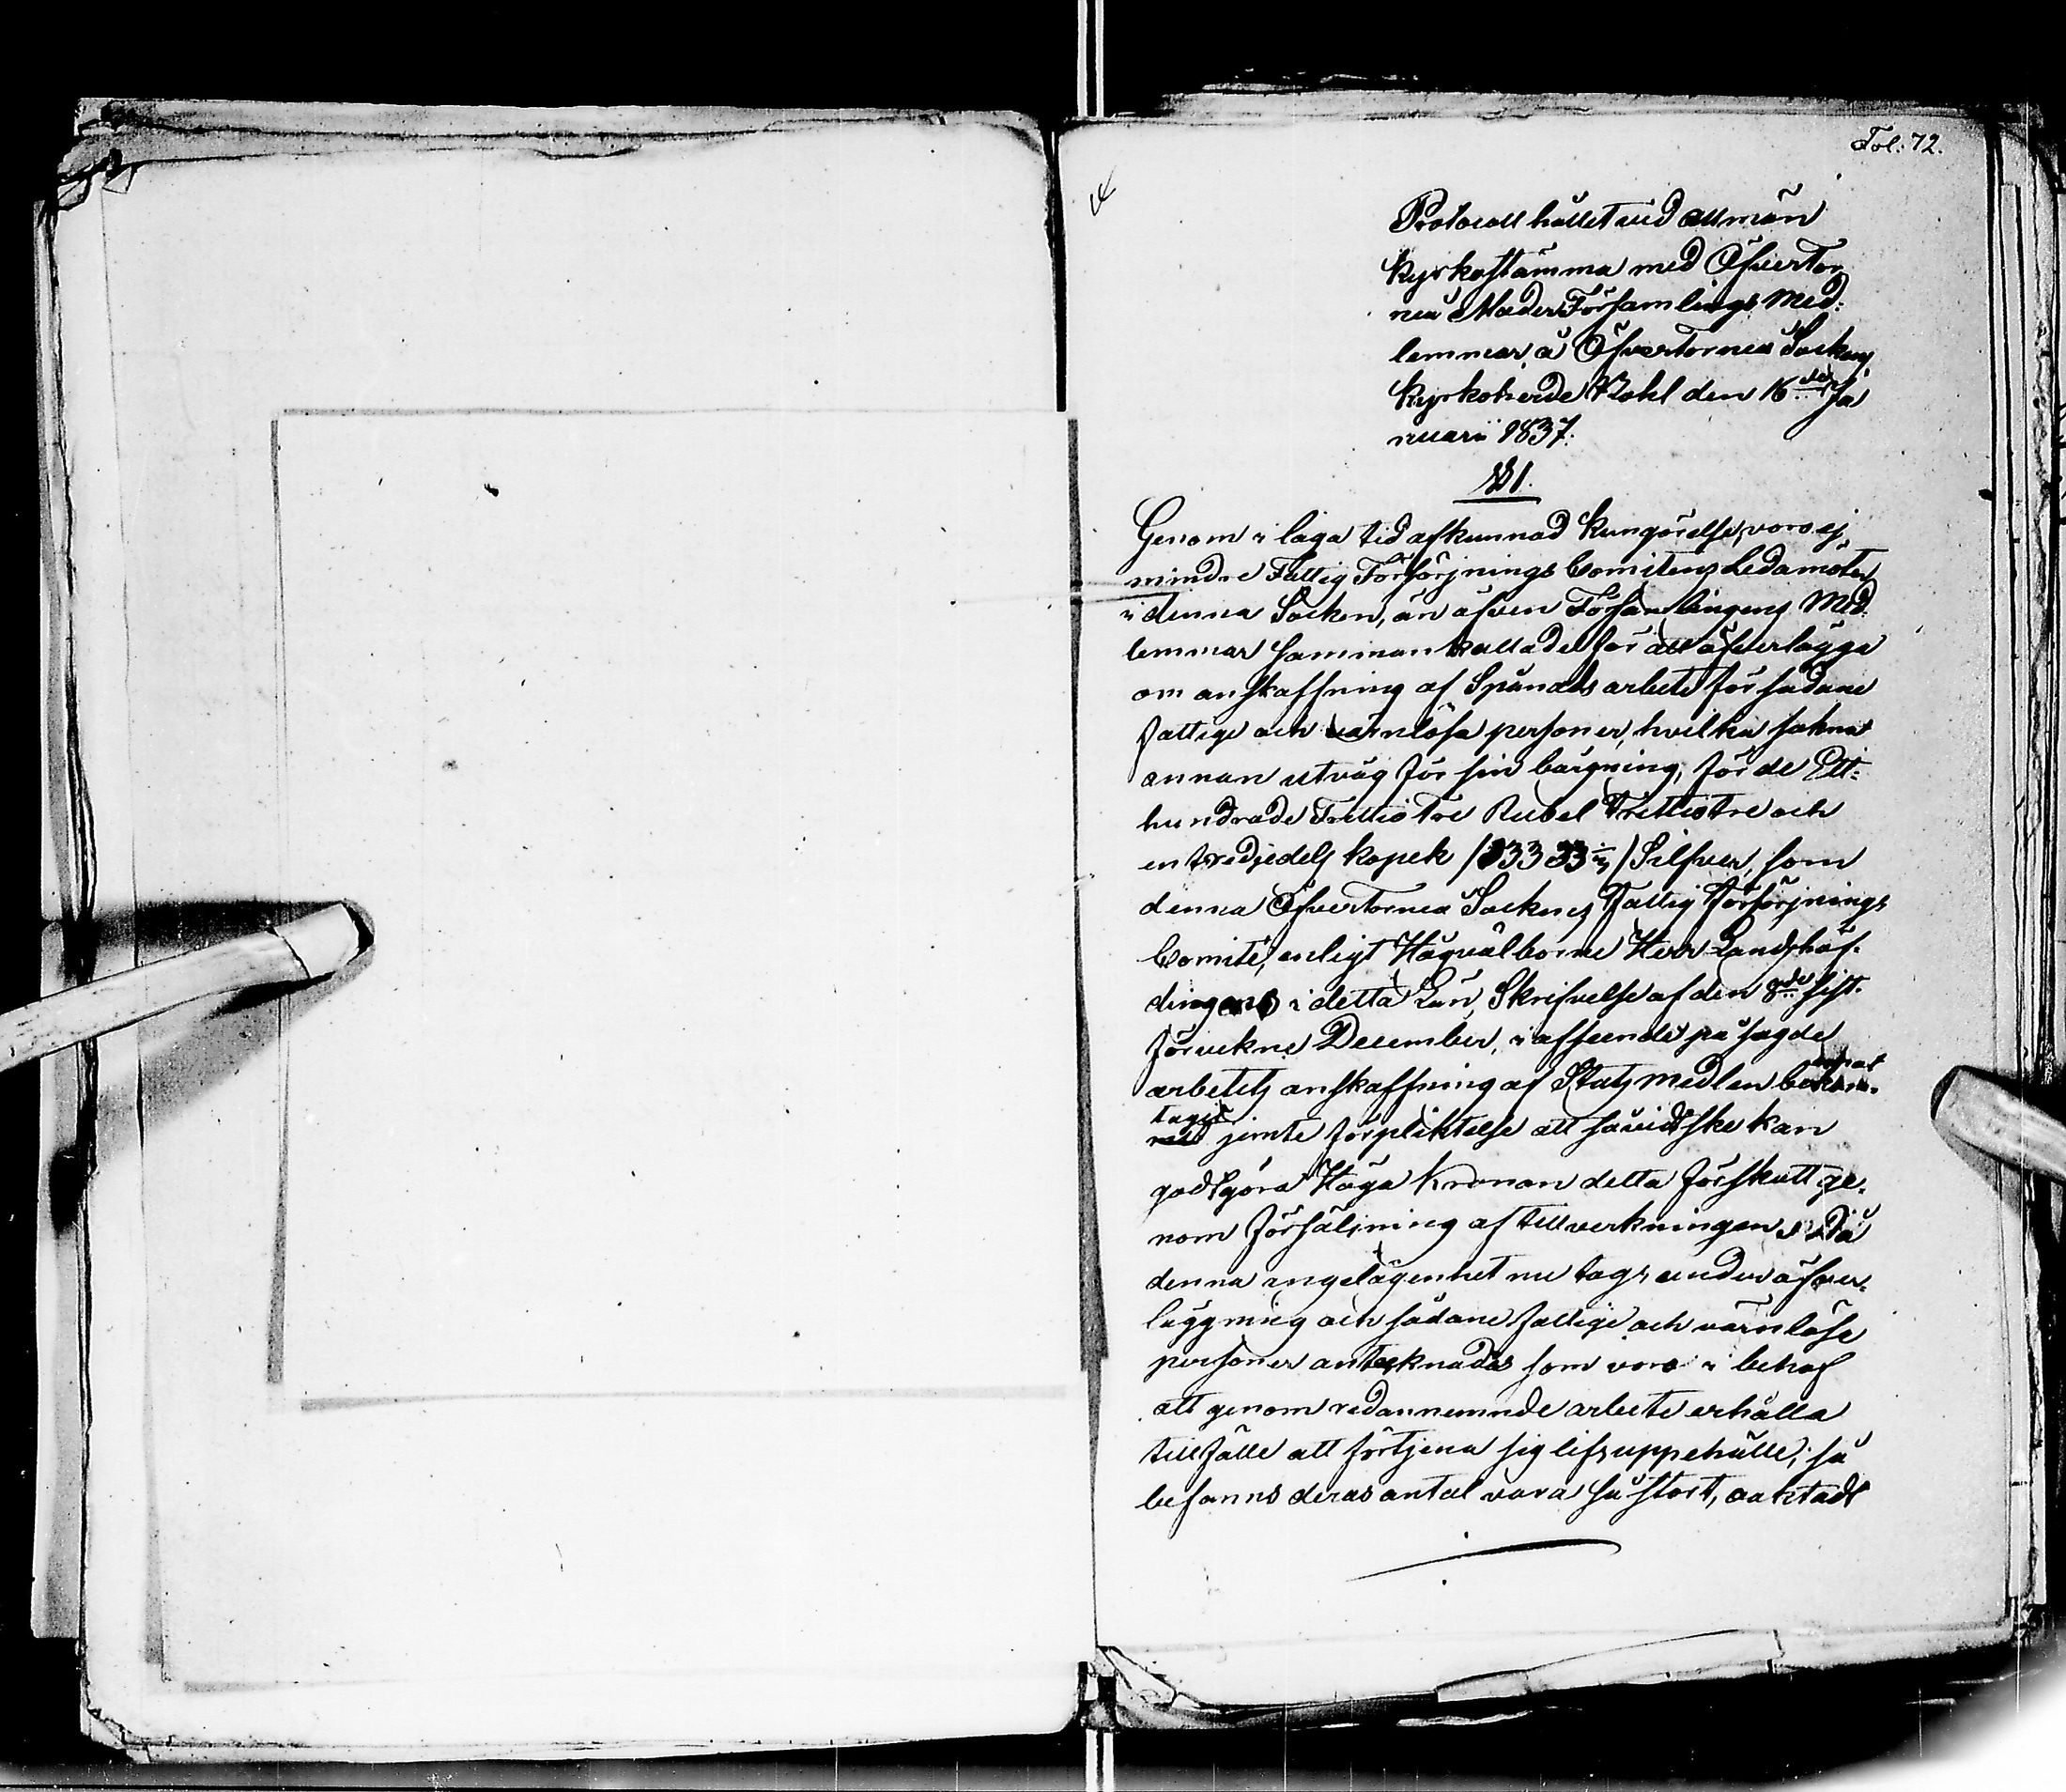 Fol: 72.
Protocoll hållet vid allmän
kyrkostämma med Öfvertor
neå Moder Församlings Med:
lemmar, å Öfvertorneå Sockens
kyrkoherde Bohl den 16de Ja
nuarii 1837.
§ 1.
Genom i laga tid afkunnad kungörelse, voro ej
mindre Fattig Försörjnings Comiténs Ledamöter
i denna Socken, än äfven Församlingens Med:
lemmar sammankallade för att öfverlägga
om anskaffning af Spånads arbete för sådane
fattige och värnlösa personer, hvilka sakna
annan utväg för sin bärgning, för de Ett:
hundrade Trettio Tre Rubel Trettiotre och
en tredjedels kopek /133 33⅓/ Silfver, som
denna Öfvertorneå Sockens Fattig Försörjnings
Comité, enligt Högvälborne Herr Landshöf-
dingens i detta Län, Skrifvelse af den 8de sist-
förvekne December, i afseende på sagde
arbetets anskaffning af Statsmedlen
jemte förpliktelse att såvidt ske kan
godtgöra Höga Kronan detta förskott ge-
nom försäljning af tillverkningen. Då
denna angelägenhet nu togs under öfver-
läggning och sådane fattige och värnlöse
personer antecknades som voro i behof
att genom redannemnde arbete erhålla
tillfälle att förtjena sig lifsuppehälle; så
befanns deras antal vara så stort, oaktadt